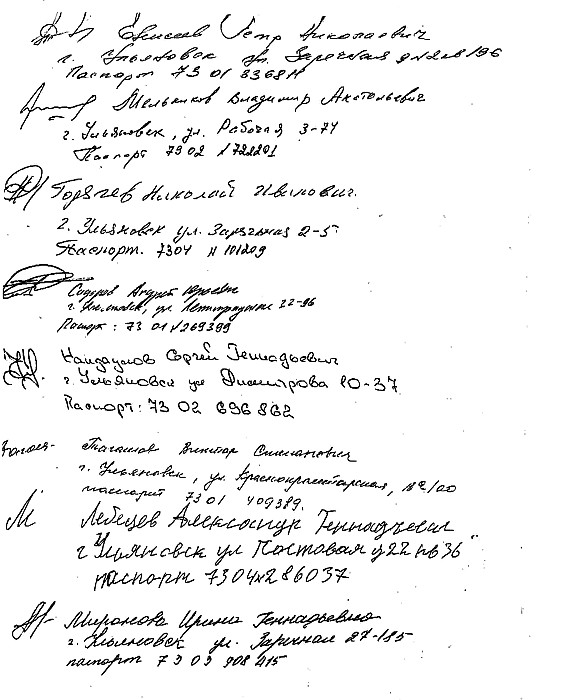 Елисеев Петр Николаевич
г. Ульяновск ул. Заречная
Паспорт 73 01
Мельников Владимир Анатольевич
г. Ульяновск, ул. Рабочая 3-74
Паспорт 7302 №722201
Горячев Николай Иванович.
г. Ульяновск ул. Заречная 2-5
Паспорт. 7304 N 101209
Сидоров Андрей Юрьевич
г. Ульяновск, ул. Ленинградская 22-96
Паспорт: 73 01 № 269399
Сергей Геннадьевич
г. Ульяновск ул Димитрова 10-37
Паспорт: 73 02 696862
Виктор Степанович
г. Ульяновск, ул. Краснопролетарская,
паспорт 7301 409389.
Лебедев Александр Геннадьевич
г Ульяновск ул Почтовая д22 кв 36
паспорт 7304 № 286037
Миронова Ирина Геннадьевна
г. Ульяновск ул. Заречная 27-185
паспорт 73 03 908 415